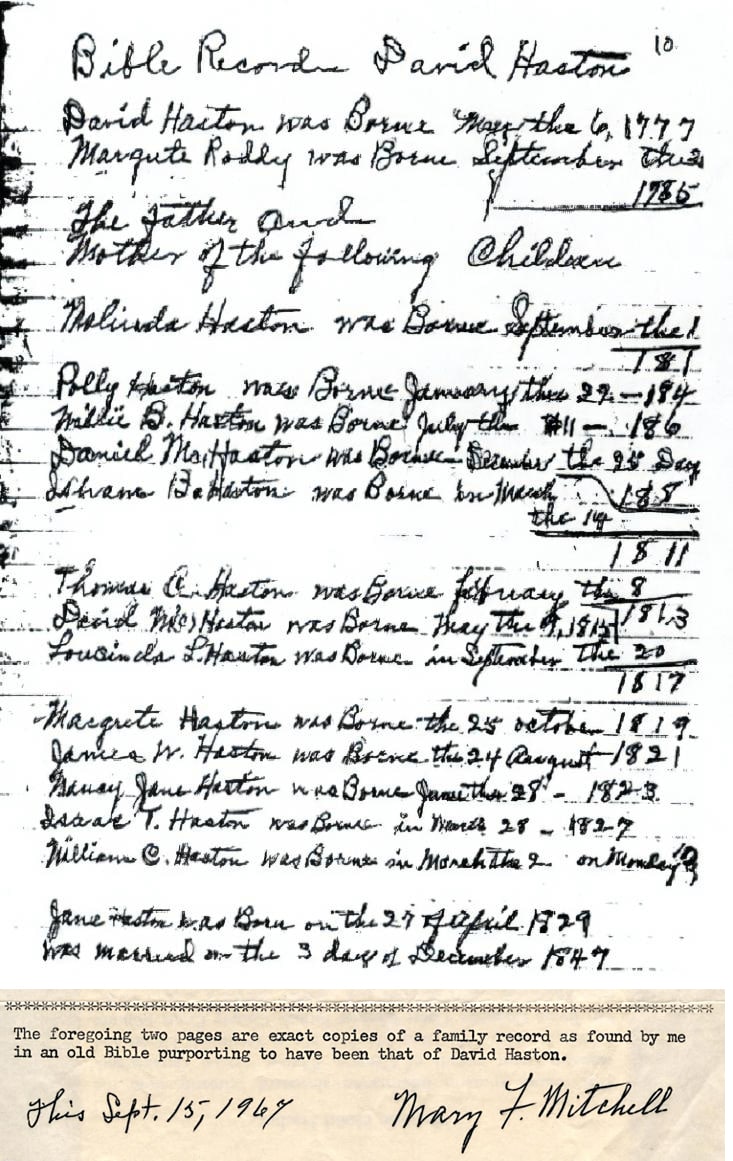 10
Bible Record David Haston
David Haston was Borne May the 6, 1777
Margute Roddy was Borne September the
1785
The father and
Mother of the following Children
Molinda Haston was Borne September the 1
181
Polly Haston was Borne January the 29 - 184
Willie B. Haston was Borne July the 11 - 186
Daniel Mc, Haston was Borne December the 25 Day
188
Haston was Borne in March
the 14
1811
Thomas A. Haston was Borne February the 8
1813
David Mc, Haston was Borne May the 1815
Lousinda L. Haston was Borne in September the 20
1817
Macgrete Haston was Borne the 25 october 1819
James W. Haston was Borne the 24 August 1821
Nancy Jane Haston was Borne June the 28 - 1823
Isaac T. Haston was Borne in March 28 - 1827
William C. Haston was Borne in March the 2 on Monday
Jane Haston was Born on the 27 of April 1829
was married on the 3 day of December 1847
The foregoing two pages are exact copies of a family record as found by me
in an old Bible purporting to have been that of David Haston.
This Sept. 15, 1967 Mary F. Mitchell